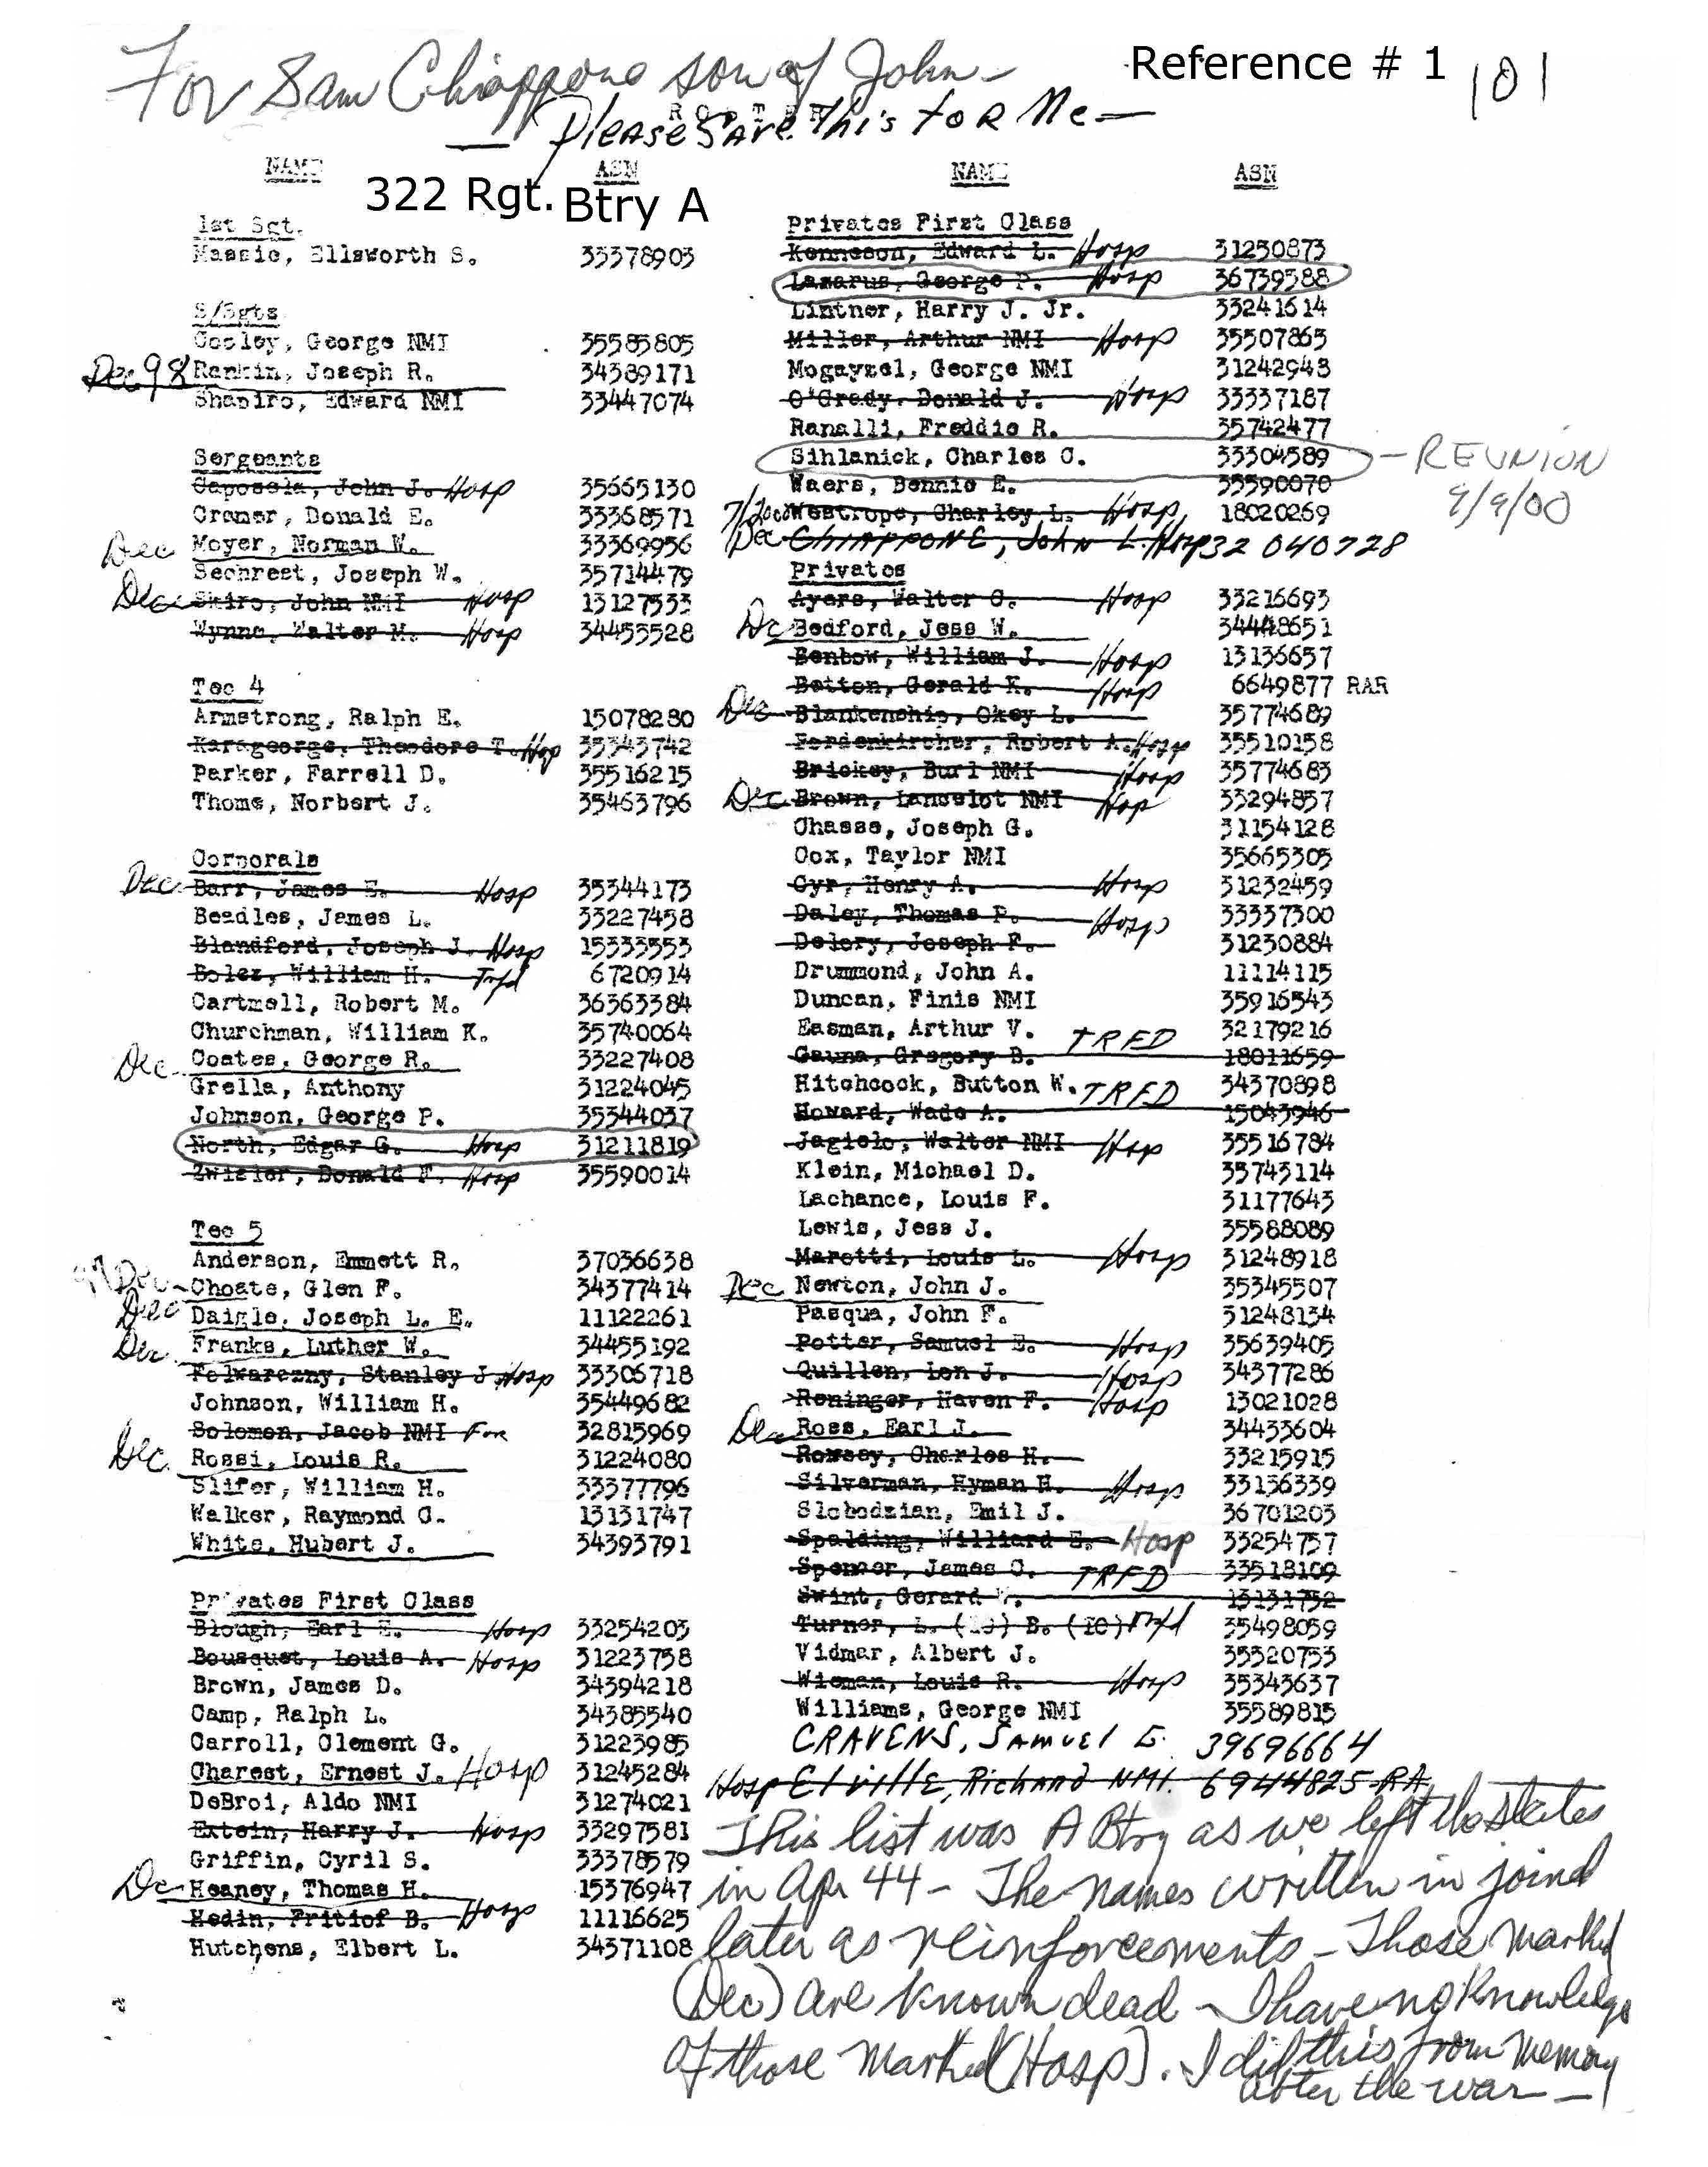 For Sam Chiappone son of John -
Reference # 1
101
ROSTER
— Please Save This for Me —
NAME ASN
322 Rgt. Btry A
1st Sgt.
Massie, Ellsworth S. 33378903
S/Sgts
Cosley, George NMI 35585805
Dec 98 Rankin, Joseph R. 34389171
Shapiro, Edward NMI 33447074
Sergeants
Caposela, John J. Hosp 35665130
Cramer, Donald E. 33368571
Dec Moyer, Norman W. 33369956
Sechrest, Joseph W. 35714479
Dec Skiro, John NMI Hosp 13127533
Wynne, Walter M. Hosp 34453528
Tec 4
Armstrong, Ralph E. 15078280
Karageorge, Theodore T. Hosp 35343742
Parker, Farrell D. 35516215
Thoms, Norbert J. 35463796
Corporals
Dec Barr, James E. Hosp 35344173
Beadles, James L. 33227458
Blandford, Joseph J. Hosp 15333553
Bolez, William H. Trfd 6720914
Cartmell, Robert M. 36363384
Churchman, William K. 35740064
Dec Coates, George R. 33227408
Grella, Anthony 31224045
Johnson, George P. 35344037
North, Edgar G. Hosp 31211819
Zwisler, Donald F. Hosp 35590014
Tec 5
Anderson, Emmett R. 37036638
97 Dec Choate, Glen F. 34377414
Dec Daigle, Joseph L. E. 11122261
Dec Franks, Luther W. 34455192
Folwarczny, Stanley J Hosp 33306718
Johnson, William H. 35449682
Solomon, Jacob NMI 32815969
Dec. Rossi, Louis R. 31224080
Slifer, William H. 33377796
Walker, Raymond C. 13131747
White, Hubert J. 34393791
Privates First Class
Blough, Earl E. Hosp 33254203
Bousquet, Louis A. Hosp 31223758
Brown, James D. 34394218
Camp, Ralph L. 34385540
Carroll, Clement G. 31223985
Charest, Ernest J. Hosp 31245284
DeBroi, Aldo NMI 31274021
Extein, Harry J. Hosp 33297581
Griffin, Cyril S. 33378579
Dec Heaney, Thomas H. 15376947
Hedin, Fritiof B. Hosp 11116625
Hutchens, Elbert L. 34371108
NAME ASN
Privates First Class
Kenneson, Edward L. Hosp 31250873
Lazarus, George P. Hosp 36739588
Lintner, Harry J. Jr. 33241614
Miller, Arthur NMI Hosp 35507865
Mogayzel, George NMI 31242943
O'Grady, Donald J. Hosp 33337187
Ranalli, Freddie R. 35742477
Sihlanick, Charles C. 33304589 - REUNION
9/9/00
Waers, Bennie E. 35590070
7/2000 Westrope, Charley L. Hosp. 18020269
Dec CHIAPPONE, John L. Hosp 32 040728
Privates
Ayers, Walter C. Hosp 33216693
Dec Bedford, Jess W. 34448651
Benbow, William J. Hosp 13136657
Betten, Gerald K. Hosp 6649877 RAR
Dec Blankenship, Okey L. 35774689
Fordenkircher, Robert A. Hosp 35510158
Brickey, Burl NMI Hosp 35774683
Dec Brown, Lancelot NMI Hosp 33294857
Chasse, Joseph G. 31154128
Cox, Taylor NMI 35665305
Cyr, Henry A. Hosp 31232459
Daley, Thomas P. Hosp 33337300
Delory, Joseph F. 31230884
Drummond, John A. 11114115
Duncan, Finis NMI 35916543
Easman, Arthur V. 32179216
Gauna, Gregory B. TRFD 18011659
Hitchcock, Button W. 34370898
Howard, Wade A. TRFD 15043946
Jagielo, Walter NMI Hosp 35516784
Klein, Michael D. 35745114
Lachance, Louis F. 31177643
Lewis, Jess J. 35588089
Marotti, Louis L. Hosp 31248918
Dec Newton, John J. 35345507
Pasqua, John F. 31248134
Potter, Samuel E. Hosp 35639405
Quillen, Lon J. Hosp 34377286
Reninger, Haven F. Hosp 13021028
Dec Ross, Earl J. 34433604
Rowsey, Charles H. 33215915
Silverman, Hyman H. Hosp 33136339
Slobodzian, Emil J. 36701203
Spalding, Williard E. Hosp 33254757
Spencer, James C. TRFD 33518109
Swint, Gerard W. 13131752
Turner, L. (IO) B. (IO) Trfd 35498059
Vidmar, Albert J. 35520753
Wieman, Louis R. Hosp 35343637
Williams, George NMI 35589815
CRAVENS, SAMUEL E. 39696664
Hosp Elville, Richard NMI. 6944825-RA
This list was A Btry as we left the States
in Apr 44 - The names written in joined
later as reinforcements - Those marked
(Dec) are known dead - I have no knowledge
of those marked (Hosp). I did this from memory
after the war -